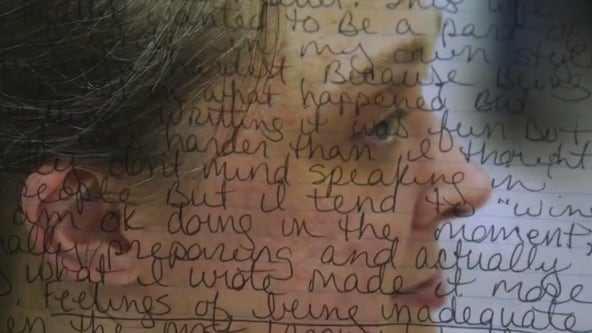 This life
wanted to be a part of
in my own style
Because being
what happened. But
writing it was fun But
harder than I thought
don't mind speaking in
people But I tend to "win
am ok doing in the moment,
preparing and actually
what I wrote made it more
Feelings of being inadequate
the most